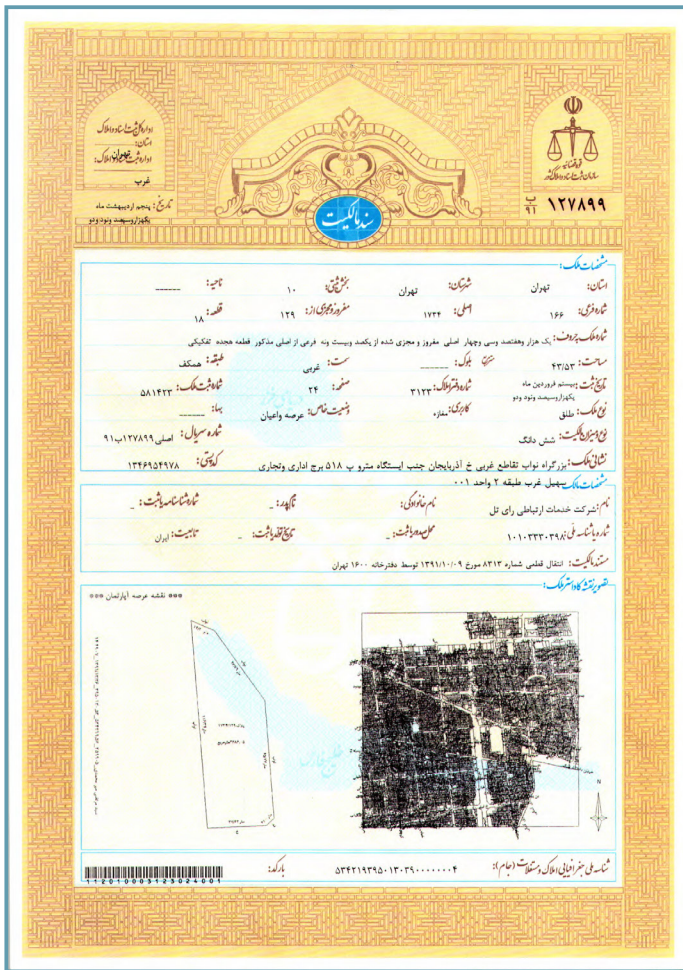 اداره کل ثبت اسناد و املاک
استان:
تهران
اداره ثبت اسناد و املاک:
غرب
تاریخ: پنجم اردیبهشت ماه
یکهزاروسیصد ونود ودو
قوه قضائیه
سازمان ثبت اسناد و املاک کشور
ب ۹۱ ۱۲۷۸۹۹
سند مالکیت
مشخصات ملک:
استان: تهران شهرستان: تهران بخش ثبتی: ۱۰ ناحیه: ------
شماره فرعی: ۱۶۶ اصلی: ۱۷۳۴ مفروز و مجزی از: ۱۲۹ قطعه: ۱۸
شماره ملک بحروف: یک هزار وهفتصد وسی وچهار اصلی مفروز و مجزی شده از یکصد وبیست ونه فرعی از اصلی مذکور قطعه هجده تفکیکی
مساحت: ۴۳/۵۳ مترمربع بلوک: ------ سمت: غربی طبقه: همکف
تاریخ ثبت: بیستم فروردین ماه یکهزاروسیصد ونود ودو شماره دفتر املاک: ۳۱۲۳ صفحه: ۲۴ شماره ثبت ملک: ۵۸۱۴۲۳
نوع ملک: طلق کاربری: مغازه وضعیت خاص: عرصه واعیان بهاء: ------
نوع و میزان مالکیت: شش دانگ شماره سریال: اصلی ۱۲۷۸۹۹ب۹۱
نشانی ملک: بزرگراه نواب تقاطع غربی خ آذربایجان جنب ایستگاه مترو پ ۵۱۸ برج اداری وتجاری کدپستی: ۱۳۴۶۹۵۴۹۷۸
سهیل غرب طبقه ۲ واحد ۰۰۱
مشخصات مالک:
نام: شرکت خدمات ارتباطی رای تل نام خانوادگی: نام پدر: - شماره شناسنامه یا ثبت: -
شماره یا شناسه ملی: ۱۰۱۰۳۳۳۰۳۹۸ محل صدور یا ثبت: - تاریخ تولد یا ثبت: - تابعیت: ایران
مستند مالکیت: انتقال قطعی شماره ۸۳۱۳ مورخ ۱۳۹۱/۱۰/۰۹ توسط دفترخانه ۱۶۰۰ تهران
تصویر نقشه کاداستر ملک:
*** نقشه عرصه آپارتمان ***
N
خلیج فارس
شناسه ملی جغرافیایی املاک و مستغلات (جام): ۵۳۴۲۱۹۳۹۵۰۱۳۰۳۹۰۰۰۰۰۰۰۴ بارکد:
112010003123024001